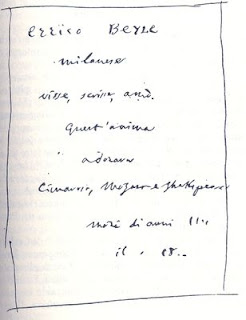 Errico Beyle
milanese
visse, scrisse, amò.
Quest'anima
adorava
Cimarosa, Mozart e Shakespeare
morì di anni
il 18..